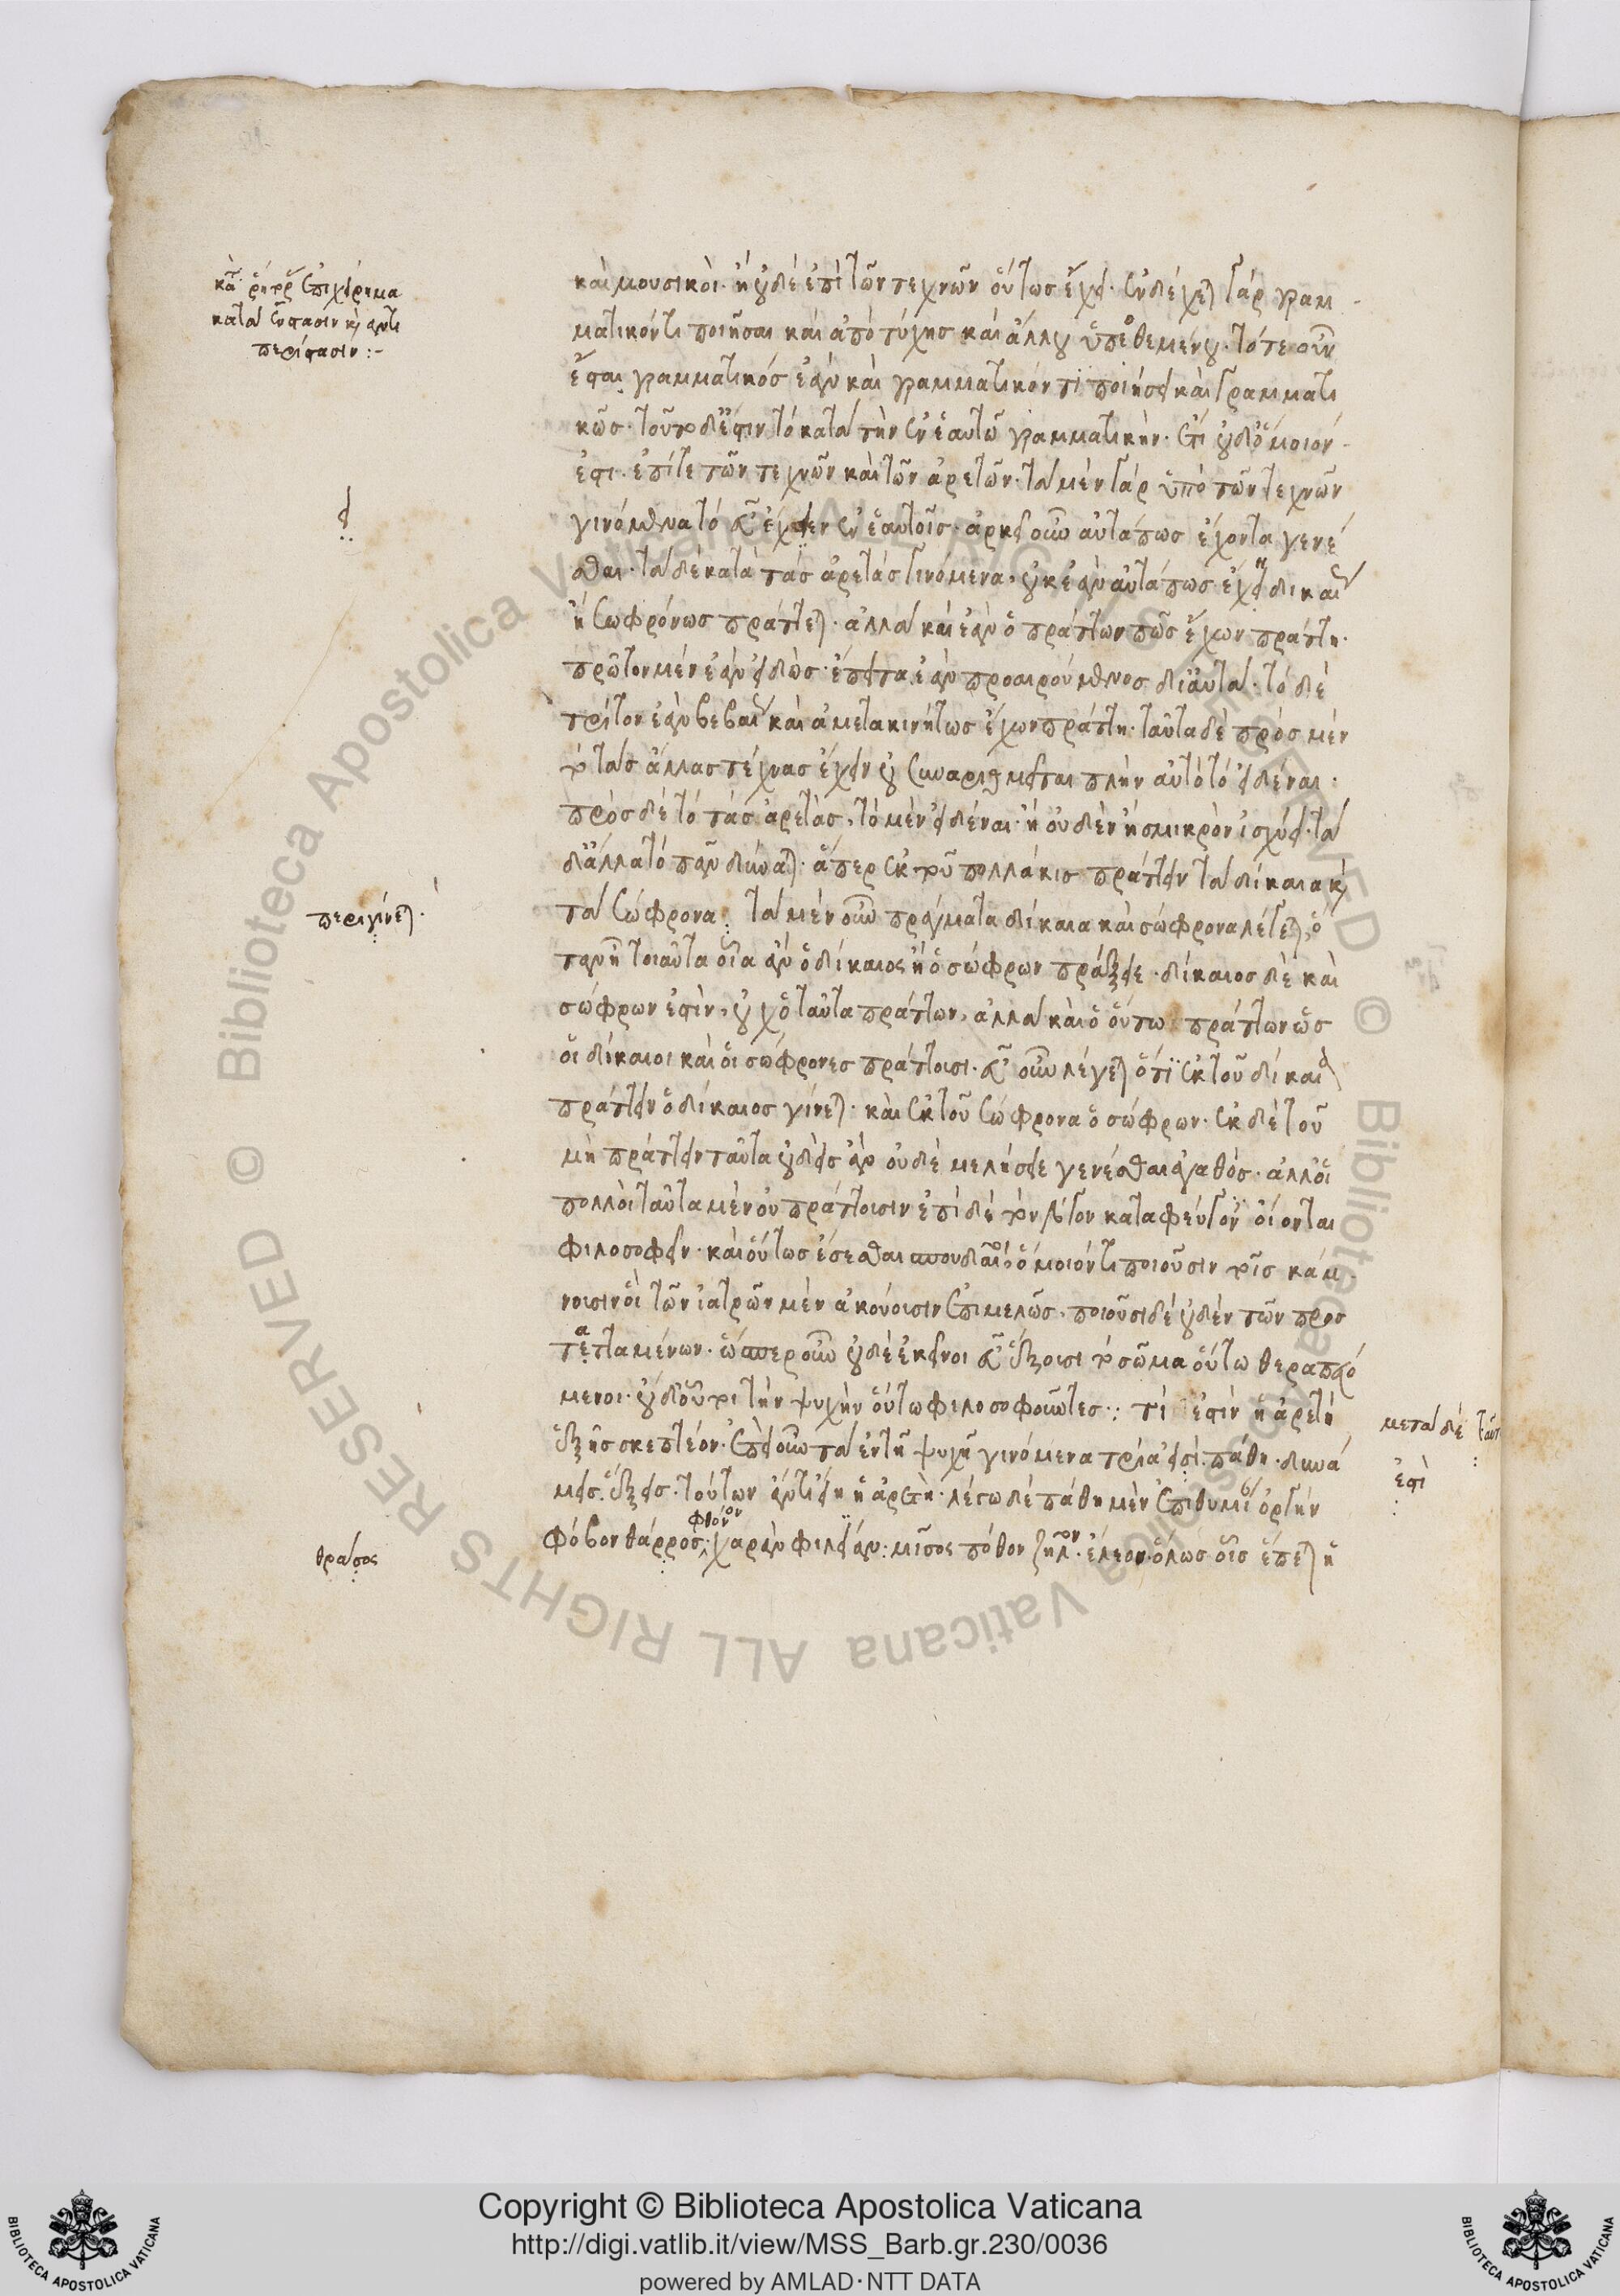 καὶ μουσικοί. ἢ οὐδὲ ἐπὶ τῶν τεχνῶν οὕτως ἔχει. ἐνδέχεται γὰρ γραμ
ματικόν τι ποιῆσαι καὶ ἀπὸ τύχης καὶ ἄλλου ὑποθεμένου. τότε οὖν
ἔσται γραμματικός ἐὰν καὶ γραμματικόν τι ποιήσει καὶ γραμματι
κῶς. τοῦτο δ' ἔστιν τὸ κατὰ τὴν ἐν ἑαυτῶ γραμματικήν. ἔτι οὐδ' ὅμοιόν
ἐστι. ἐπί τε τῶν τεχνῶν καὶ τῶν ἀρετῶν. τὰ μὲν γὰρ ὑπὸ τῶν τεχνῶν
γινόμενα τὸ εὖ ἔχειν ἐν ἑαυτοῖς. ἀρκεῖ οὖν αὐτά πως ἔχοντα γενέ
σθαι. τὰ δὲ κατὰ τὰς ἀρετὰς γινόμενα, οὐκ ἐὰν αὐτά πως ἔχη δικαίως
ἢ σωφρόνως πράττεται. ἀλλὰ καὶ ἐὰν ὁ πράττων πῶς ἔχων πράττη.
πρῶτον μὲν ἐὰν εἰδώς. ἔπειτα ἐὰν προαιρούμενος δι' αὐτά. τὸ δὲ
τρίτον ἐὰν βεβαίως καὶ ἀμετακινήτως ἔχων πράττη. ταῦτα δὲ πρὸς μὲν
τὸ τὰς ἄλλας τέχνας ἔχειν οὐ συναριθμεῖται πλὴν αὐτὸ τὸ εἰδέναι.
πρὸς δὲ τὸ τὰς ἀρετὰς, τὸ μὲν εἰδέναι. ἢ οὐδὲν ἢ σμικρὸν ἰσχύει. τὰ
δ' ἄλλα τὸ πᾶν δύναται. ἅπερ ἐκ τοῦ πολλάκις πράττειν τὰ δίκαια καὶ
τὰ σώφρονα: τὰ μὲν οὖν πράγματα δίκαια καὶ σώφρονα λέγεται, ὅ
ταν ἦ τοιαῦτα οἷα ἂν ὁ δίκαιος ἢ ὁ σώφρων πράξειε. δίκαιος δὲ καὶ
σώφρων ἐστὶν, οὐχ ὁ ταῦτα πράττων, ἀλλὰ καὶ ὁ οὕτω πράττων ὡς
οἱ δίκαιοι καὶ οἱ σώφρονες πράττουσι. εὖ οὖν λέγεται ὅτι ἐκ τοῦ δίκαια
πράττειν ὁ δίκαιος γίνεται. καὶ ἐκ τοῦ σώφρονα ὁ σώφρων. ἐκ δὲ τοῦ
μὴ πράττειν ταῦτα οὐδεὶς ἂν οὐδὲ μελήσειε γενέσθαι ἀγαθός. ἀλλ' οἱ
πολλοὶ ταῦτα μὲν οὐ πράττουσιν ἐπὶ δὲ τὸν λόγον καταφεύγον οἴονται
φιλοσοφεῖν. καὶ οὕτως ἔσεσθαι σπουδαῖοι. ὅμοιόν τι ποιοῦσιν τοῖς κάμ
νουσιν οἳ τῶν ἰατρῶν μὲν ἀκούουσιν ἐπιμελῶς. ποιοῦσι δὲ οὐδὲν τῶν προς
ταττομένων. ὥσπερ οὖν οὐδὲ ἐκεῖνοι εὖ ἕξουσι τὸ σῶμα οὕτω θεραπευό
μενοι. οὐδ' οὗτοι τὴν ψυχὴν οὕτω φιλοσοφοῦντες: τί ἐστὶν ἡ ἀρετὴ
ἑξῆς σκεπτέον. ἐπεὶ οὖν τὰ ἐν τῆ ψυχῆ γινόμενα τρία εἰσὶ. πάθη. δυνά
μεις. ἕξεις. τούτων ἄν τι εἴη ἡ ἀρετή. λέγω δὲ πάθη μὲν ἐπιθυμίαν ὀργὴν
φόβον θάρρος φθόνον χαρὰν φιλίαν: μῖσος πόθον ζῆλον. ἔλεον. ὅλως οἷς ἕπεται ἡ
ἐπιχείρημα
κατ' ἔνστασιν καὶ ἀντι
περίστασιν:-
ει
περιγίνεται.
θράσος
μετὰ δὲ ταῦτ
ἐστὶ
Copyright © Biblioteca Apostolica Vaticana
http://digi.vatlib.it/view/MSS_Barb.gr.230/0036
powered by AMLAD·NTT DATA
BIBLIOTECA APOSTOLICA VATICANA
BIBLIOTECA APOSTOLICA VATICANA
© Biblioteca Apostolica Vaticana ALL RIGHTS RESERVED © Biblioteca Apostolica Vaticana ALL RIGHTS RESERVED